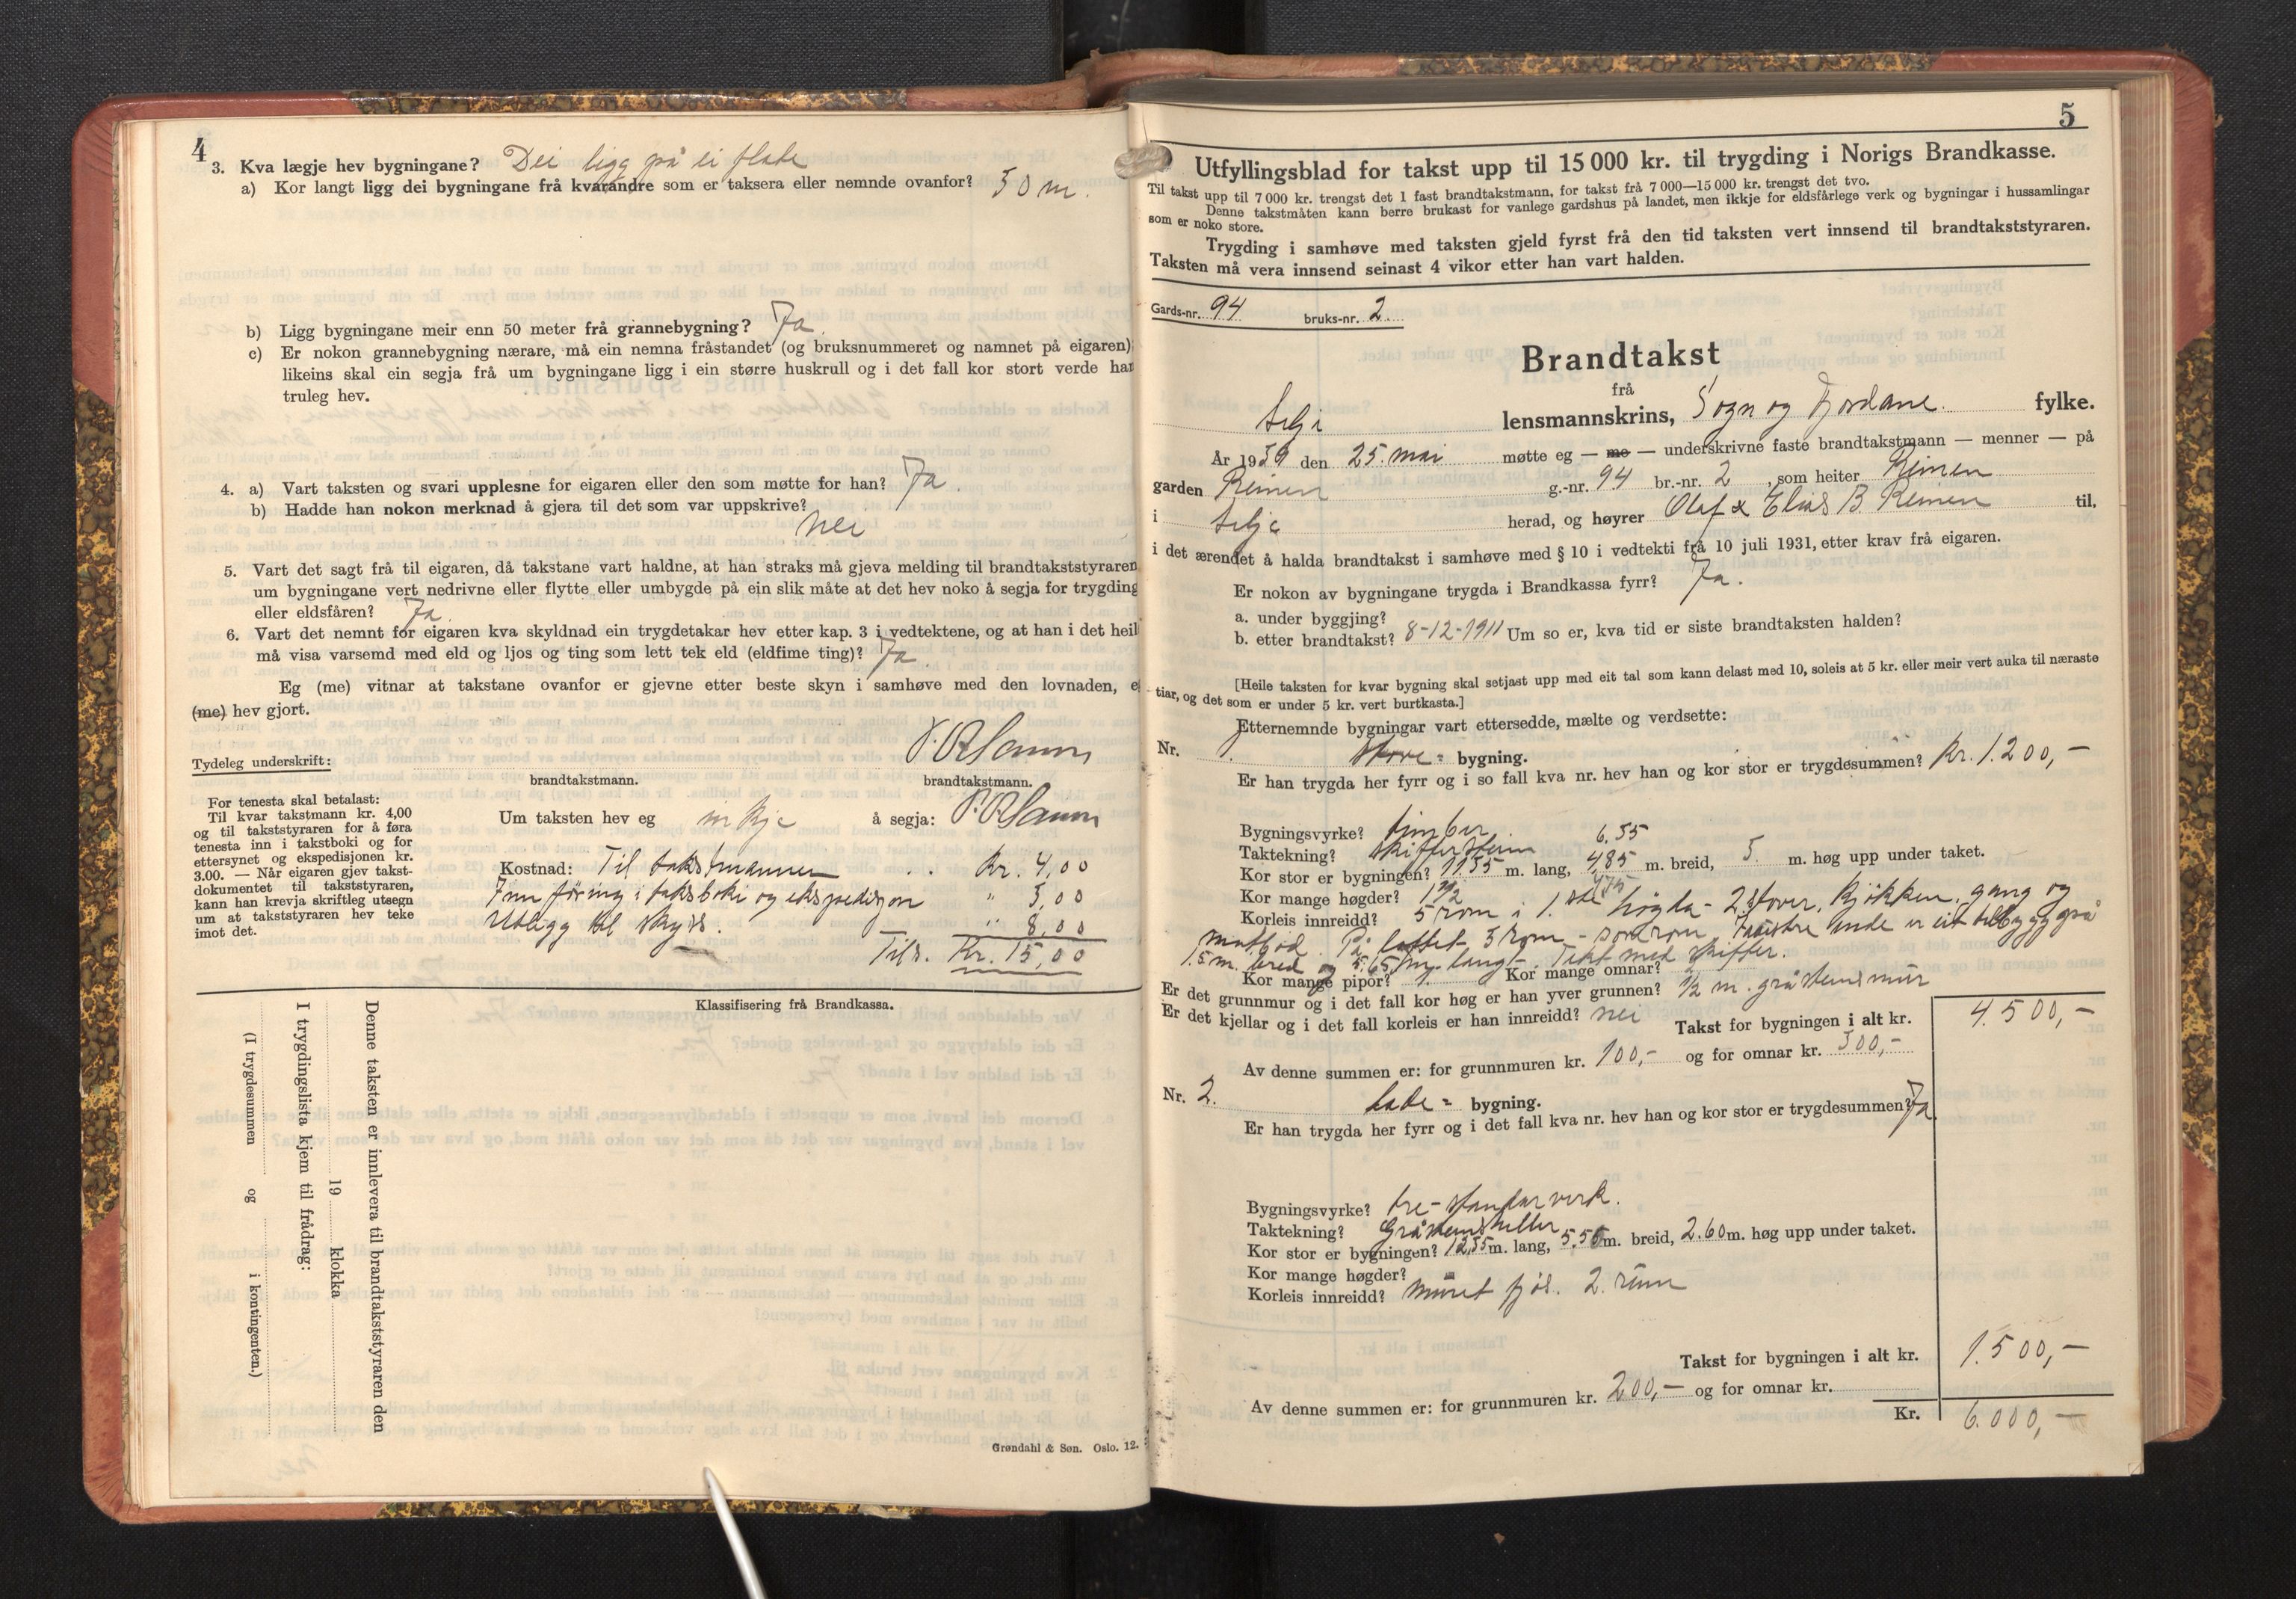 4
3. Kva lægje hev bygningane? Dei ligg på ei flate
a) Kor langt ligg dei bygningane frå kvarandre som er taksera eller nemnde ovanfor? 50 m.
b) Ligg bygningane meir enn 50 meter frå grannebygning? Ja.
c) Er nokon grannebygning nærare, må ein nemna fråstandet (og bruksnummeret og namnet på eigaren)
likeins skal ein segja frå um bygningane ligg i ein større huskrull og i det fall kor stort verde har
truleg hev.
4. a) Vart taksten og svari upplesne for eigaren eller den som møtte for han? Ja.
b) Hadde han nokon merknad å gjera til det som var uppskrive?
nei
5. Vart det sagt frå til eigaren, då takstane vart haldne, at han straks må gjeva melding til brandtakststyraren
um bygningane vert nedrivne eller flytte eller umbygde på ein slik måte at det hev noko å segja for trygding
eller eldsfåren? Ja.
6. Vart det nemnt for eigaren kva skyldnad ein trygdetakar hev etter kap. 3 i vedtektene, og at han i det heile
må visa varsemd med eld og ljos og ting som lett tek eld (eldfime ting)? Ja
Eg (me) vitnar at takstane ovanfor er gjevne etter beste skyn i samhøve med den lovnaden, e
(me) hev gjort.
Tydeleg underskrift:
brandtakstmann. brandtakstmann.
For tenesta skal betalast:
Til kvar takstmann kr. 4,00
og til takststyraren for å føra
tenesta inn i takstboki og for
ettersynet og ekspedisjonen kr.
3.00. — Når eigaren gjev takst-
dokumentet til takststyraren,
kann han krevja skriftleg utsegn
um at takststyraren hev teke
imot det.
Um taksten hev eg inkje å segja:
Kostnad: Til takstmannen . . Kr. 4,00
Innføring i taksboki og ekspedisjon " 3,00
Utlegg til skyss. " 8,00
Tils. Kr. 15,00
Klassifisering frå Brandkassa.
Denne taksten er innlevera til brandtakststyraren den
19 klokka
I trygdingslista kjem til frådrag:
(I trygdesummen og i kontingenten.)
Grøndahl & Søn. Oslo. 12.
5
Utfyllingsblad for takst upp til 15 000 kr. til trygding i Norigs Brandkasse.
Til takst upp til 7 000 kr. trengst det 1 fast brandtakstmann, for takst frå 7 000—15 000 kr. trengst det tvo.
Denne takstmåten kann berre brukast for vanlege gardshus på landet, men ikkje for eldsfårlege verk og bygningar i hussamlingar
som er noko store.
Trygding i samhøve med taksten gjeld fyrst frå den tid taksten vert innsend til brandtakststyraren.
Taksten må vera innsend seinast 4 vikor etter han vart halden.
Gards-nr. 94 bruks-nr. 2.
Brandtakst
frå
Selje lensmannskrins, Sogn og Fjordane. fylke.
År 1939 den 25. mai møtte eg — me — underskrivne faste brandtakstmann — menner — på
garden Reinen g.-nr. 94 br.-nr. 2, som heiter Reinen
i Selje herad, og høyrer Olaf & Elias B. Reinen til,
i det ærendet å halda brandtakst i samhøve med § 10 i vedtekti frå 10 juli 1931, etter krav frå eigaren.
Er nokon av bygningane trygda i Brandkassa fyrr? Ja.
a. under byggjing?
b. etter brandtakst? 8-12-1911 Um so er, kva tid er siste brandtaksten halden?
[Heile taksten for kvar bygning skal setjast upp med eit tal som kann delast med 10, soleis at 5 kr. eller meir vert auka til næraste
tiar, og det som er under 5 kr. vert burtkasta.]
Etternemnde bygningar vart ettersedde, mælte og verdsette:
Nr. 1. stove- bygning.
Er han trygda her fyrr og i so fall kva nr. hev han og kor stor er trygdesummen? Kr. 1.200,-
Bygningsvyrke? timber
Taktekning? skifferstein 6.55
Kor stor er bygningen? 11.55 m. lang, 4,85 m. breid, 5. m. høg upp under taket.
Kor mange høgder? 1½
Korleis innreidd? 5 rom i 1. ste høgda - 2 stover, kjøkken, gang og
matbod. På loftet 3 rom - soverom. I vestre ende er eit tilbygg på
1.5 m. bred og 5,65 m. langt. Tekt med skiffer.
Kor mange pipor? 1. Kor mange omnar?
Er det grunnmur og i det fall kor høg er han yver grunnen? ½ m. gråsteinsmur
Er det kjellar og i det fall korleis er han innreidd? nei
Takst for bygningen i alt kr. 4.500,-
Av denne summen er: for grunnmuren kr. 100,- og for omnar kr. 300,-
Nr. 2. Løde- bygning.
Er han trygda her fyrr og i det fall kva nr. hev han og kor stor er trygdesummen? Ja
Bygningsvyrke? tre-standarverk.
Taktekning? Gråsteinsheller
Kor stor er bygningen? 12,55 m. lang, 5.50 m. breid, 2.60 m. høg upp under taket.
Kor mange høgder?
Korleis innreidd? muret fjøs. 2. rum
Takst for bygningen i alt kr. 1.500,-
Av denne summen er: for grunnmuren kr. 200,- og for omnar kr.
Kr. 6.000,-